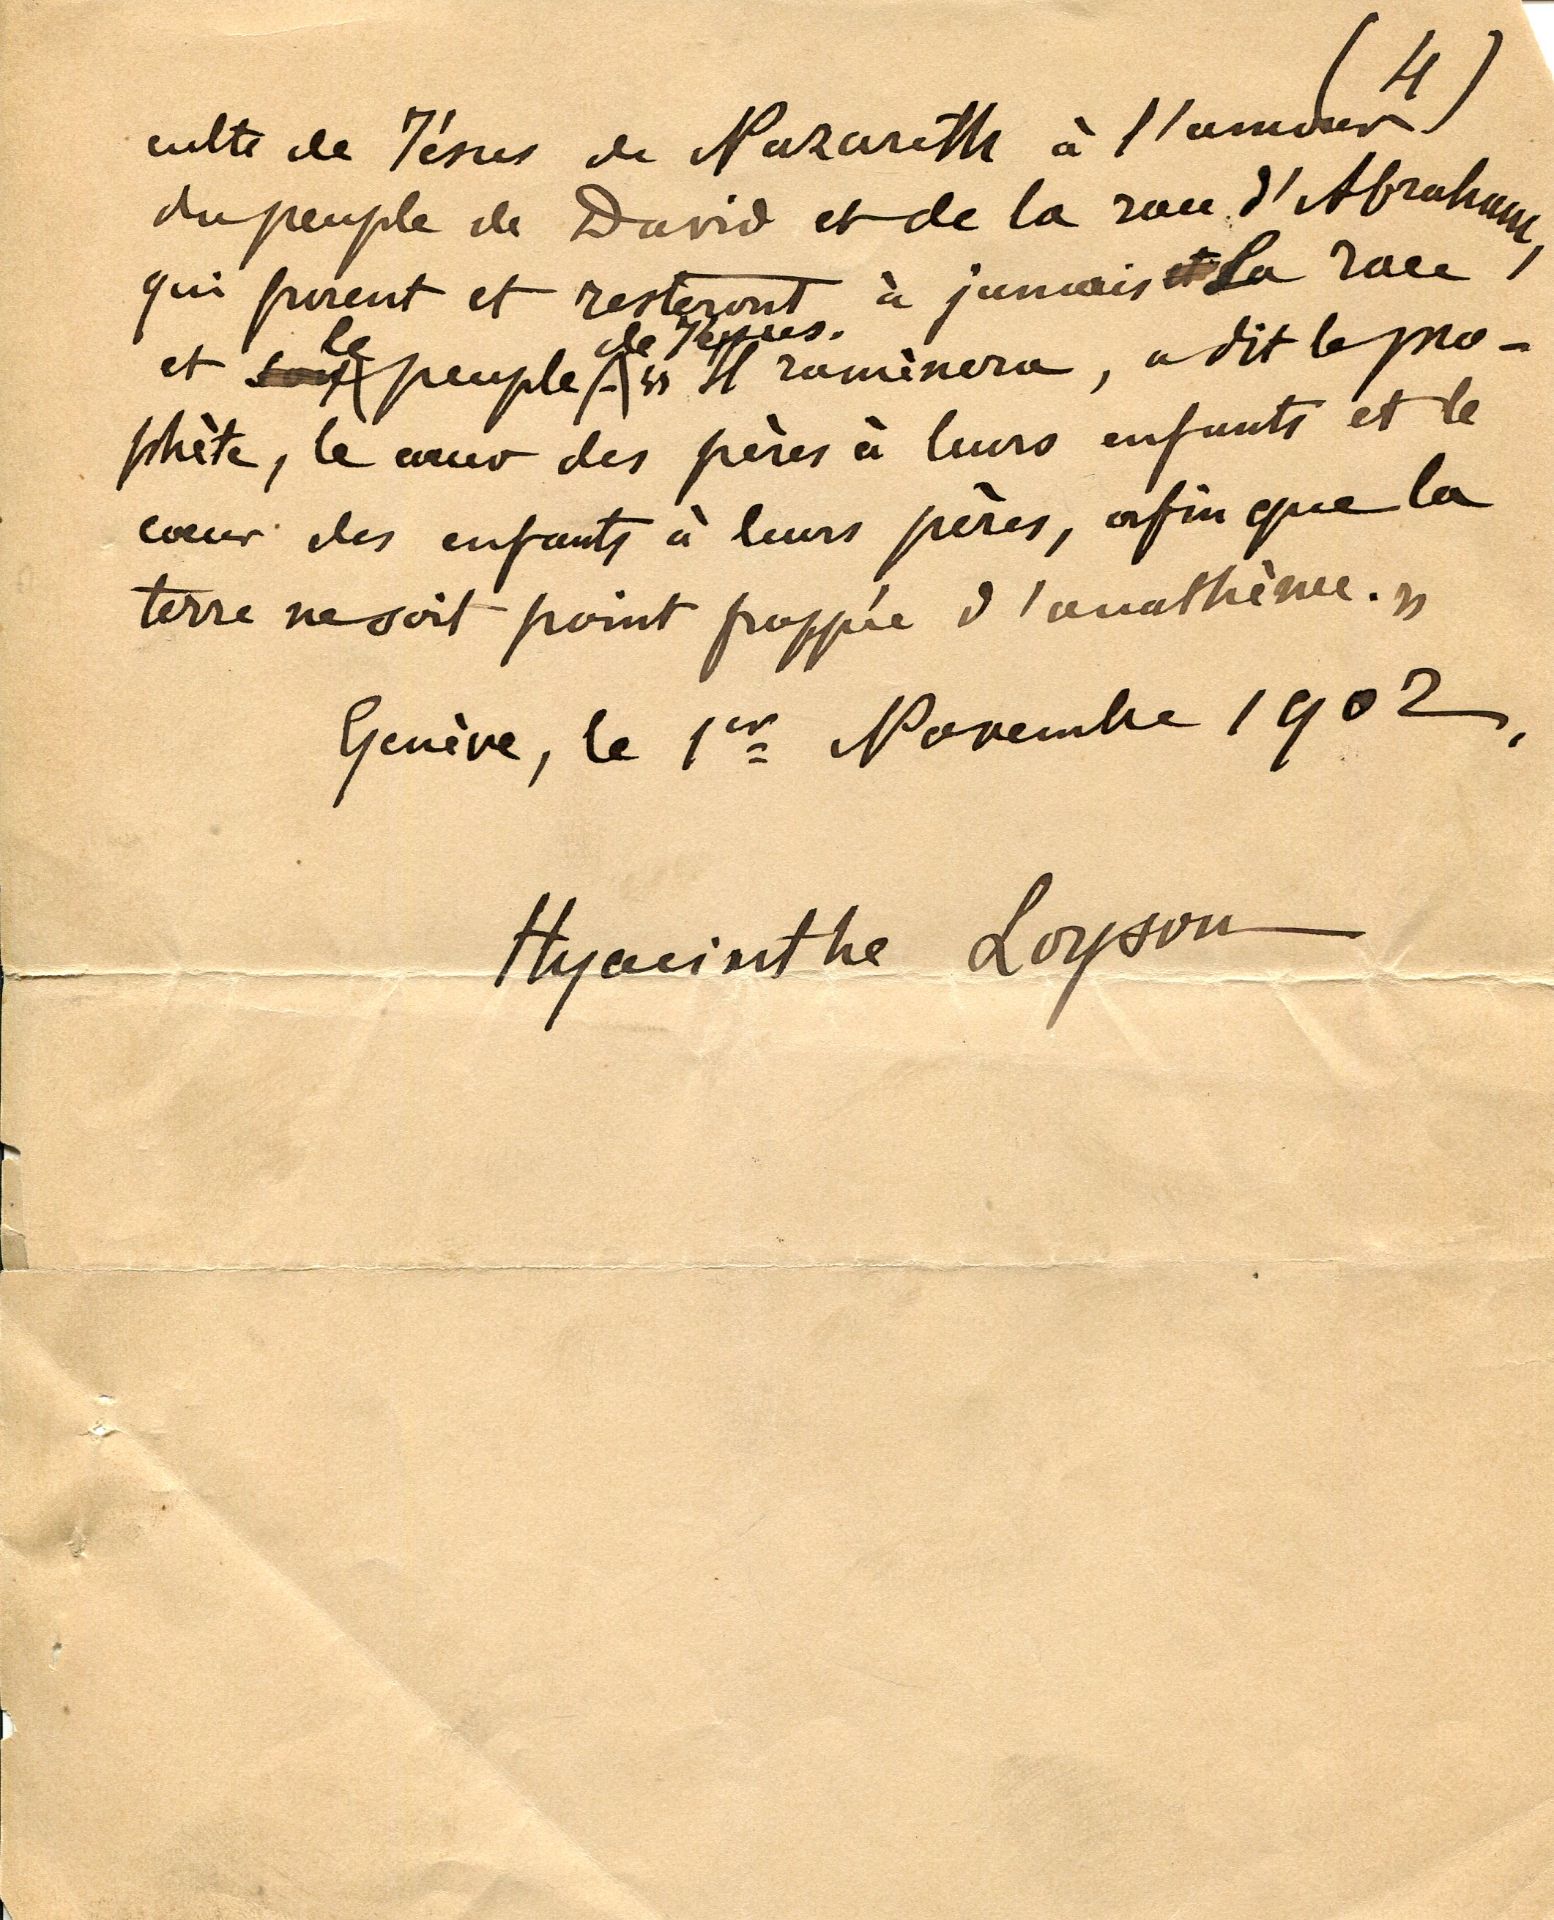 (4)
culte de Jésus de Nazareth à l'amour
du peuple de David et de la race d'Abraham,
qui furent et resteront à jamais la race
et le peuple de Jésus. « Il ramènera, a dit le pro-
phète, le cœur des pères à leurs enfants et le
cœur des enfants à leurs pères, afin que la
terre ne soit point frappée d'anathème. »
Genève, le 1er Novembre 1902.
Hyacinthe Loyson